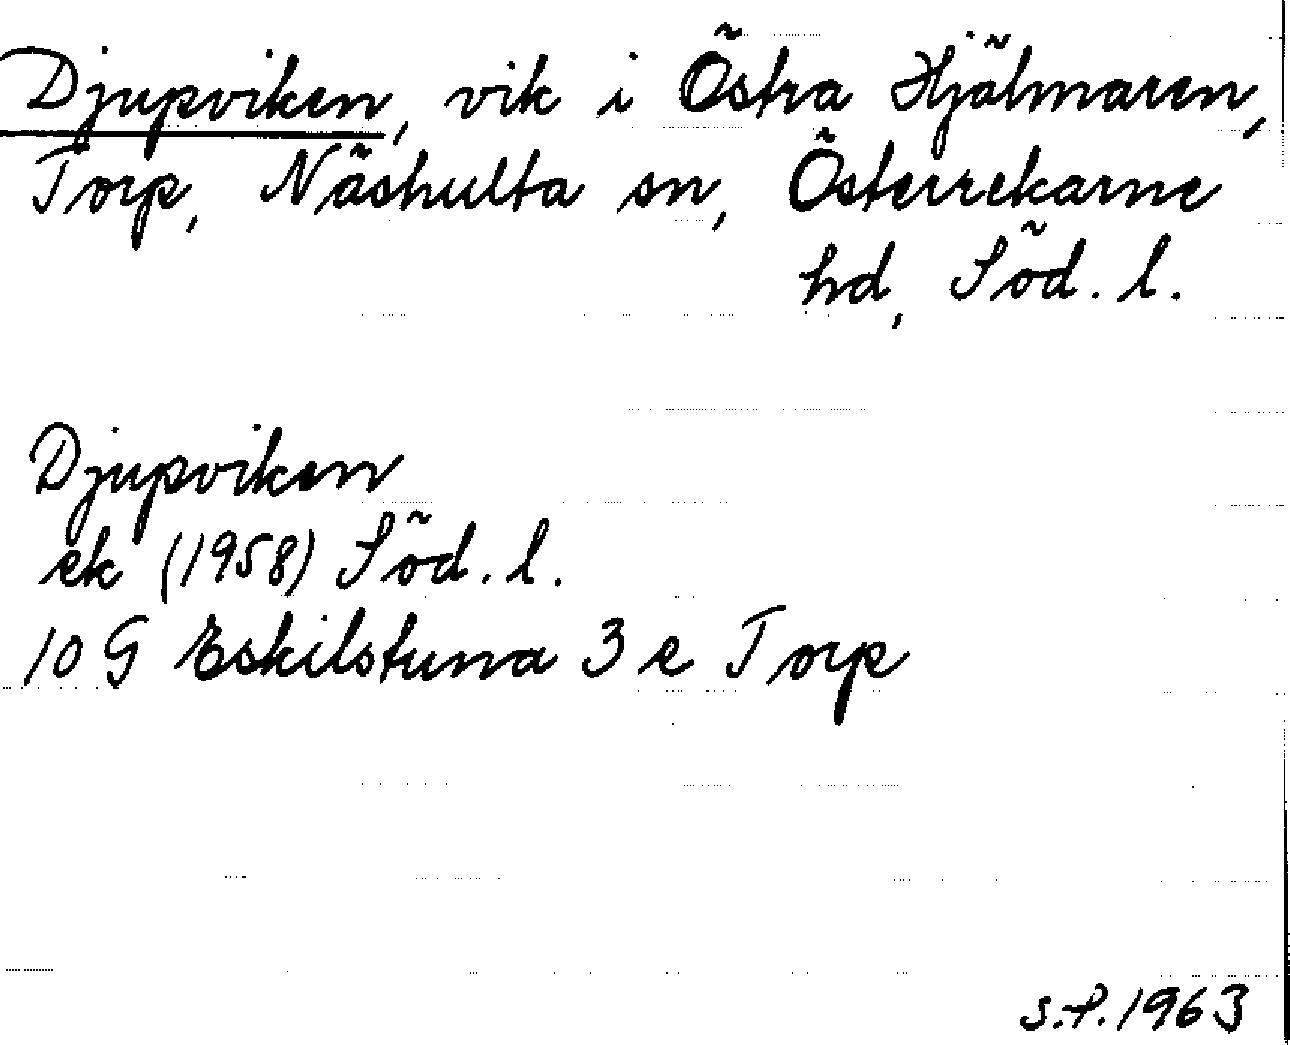 Djupviken, vik i Östra Hjälmaren,
Torp, Näshulta sn, Österrekarne
hd, Söd. l.
Djupviken
ek (1958) Söd. l.
10 G Eskilstuna 3 e Torp
S.P. 1963